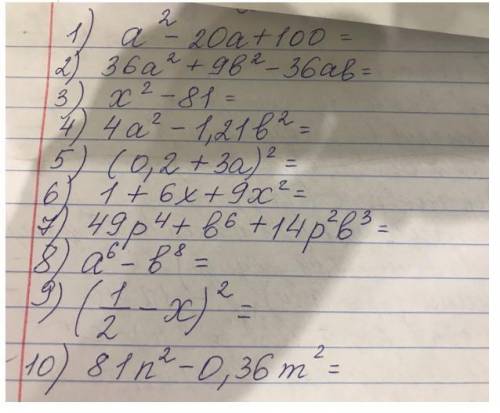 1) a² - 20a + 100 =
2) 36a² + 9в² - 36ав =
3) x² - 81 =
4) 4a² - 1,21в² =
5) (0,2 + 3a)² =
6) 1 + 6x + 9x² =
7) 49p⁴ + в⁶ + 14p²в³ =
8) a⁶ - в⁸ =
9) (1/2 - x)² =
10) 81n² - 0,36m² =